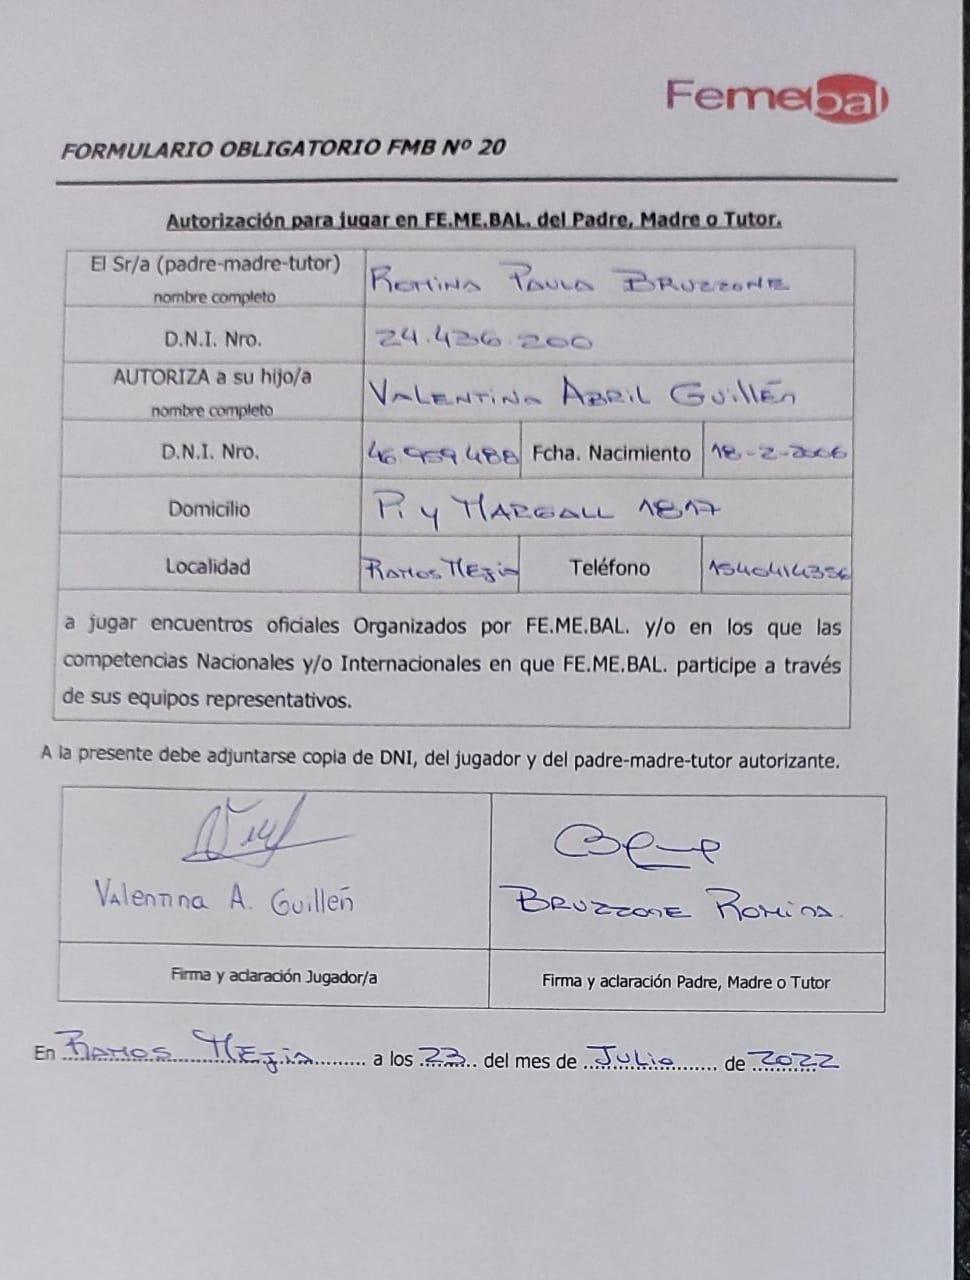 Femebal
FORMULARIO OBLIGATORIO FMB Nº 20
Autorización para jugar en FE.ME.BAL. del Padre, Madre o Tutor.
El Sr/a (padre-madre-tutor) nombre completo ROMINA PAULA BRUZZONE
D.N.I. Nro. 24.436.200
AUTORIZA a su hijo/a nombre completo VALENTINA ABRIL GUILLÉN
D.N.I. Nro. 46.959.488 Fcha. Nacimiento 18-2-2006
Domicilio PI y MARGALL 1817
Localidad RAMOS MEJIA Teléfono 1540414356
a jugar encuentros oficiales Organizados por FE.ME.BAL. y/o en los que las
competencias Nacionales y/o Internacionales en que FE.ME.BAL. participe a través
de sus equipos representativos.
A la presente debe adjuntarse copia de DNI, del jugador y del padre-madre-tutor autorizante.
Valentina A. Guillén BRUZZONE ROMINA.
Firma y aclaración Jugador/a Firma y aclaración Padre, Madre o Tutor
En RAMOS MEJIA a los 23 del mes de JULIO de 2022